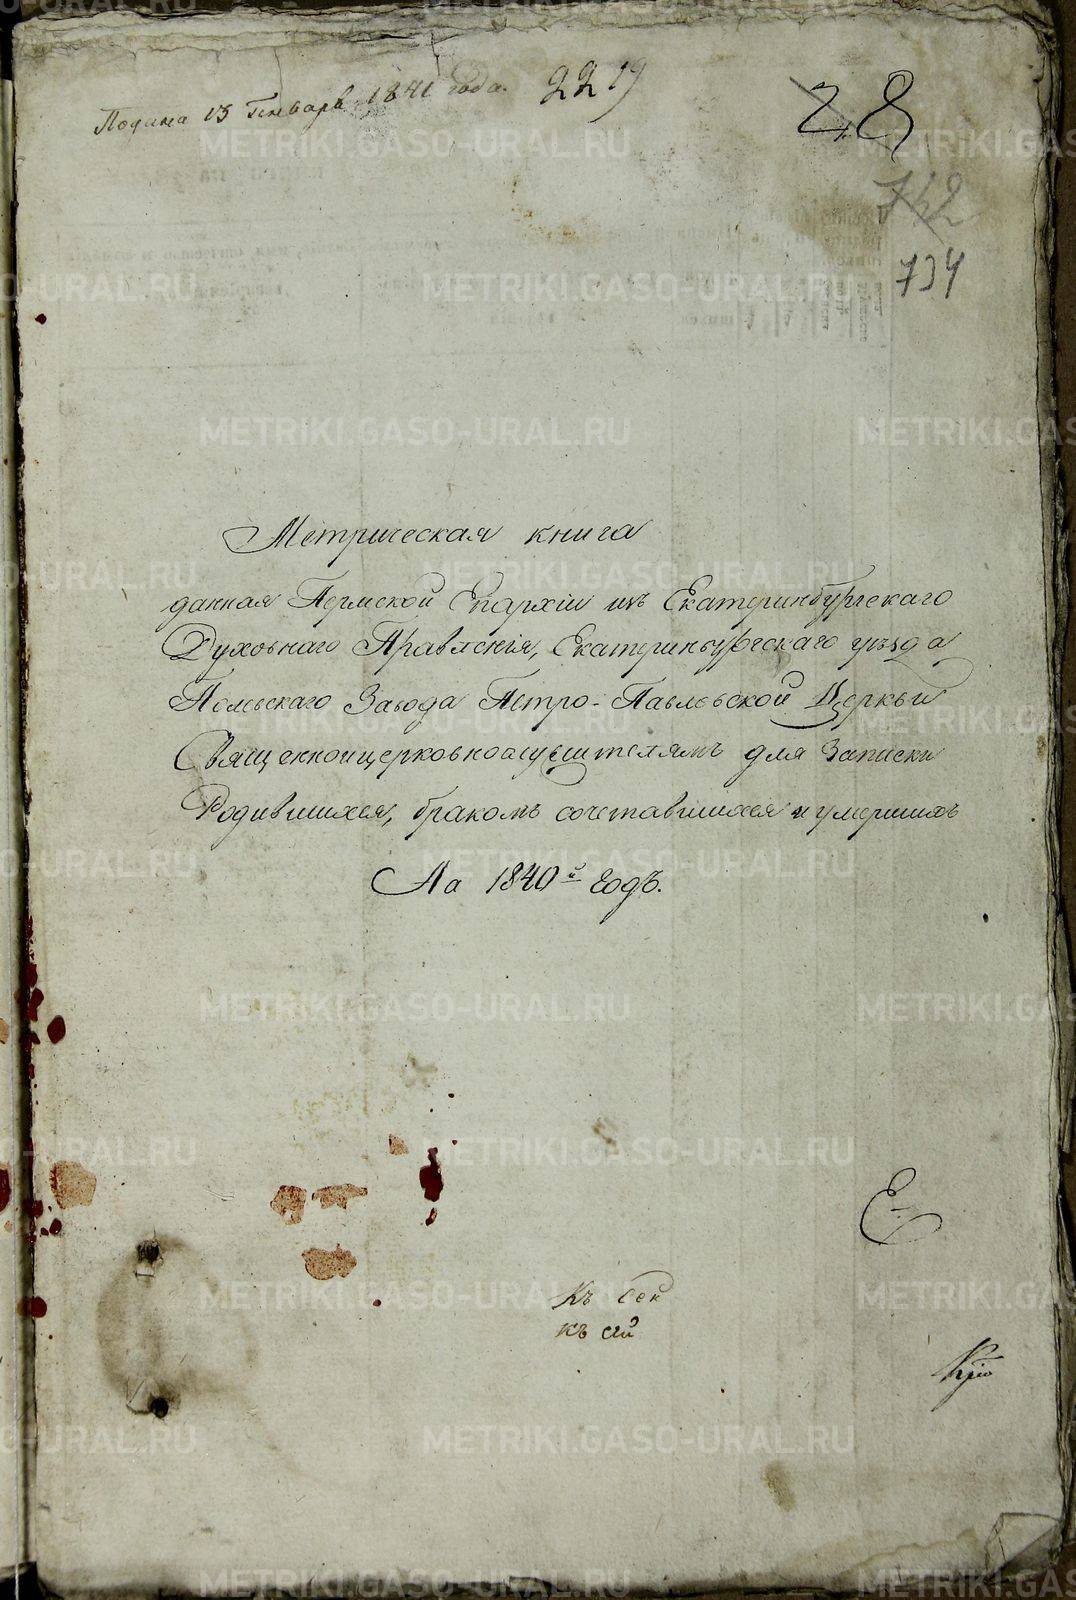 Подана 13 Генваря 1841 года. 2219
28
742
734
Метрическая книга
данная Пермской Епархіи изъ Екатеринбургскаго
Духовнаго Правленія, Екатеринбургскаго уѣзда
Полевскаго Завода Петро-Павловской Церкви
Священноицерковнослужителямъ для Записки
Родившихся, бракомъ сочетавшихся и умершихъ
На 1840й годъ.
Е
Къ
къ сей
METRIKI.GASO-URAL.RU